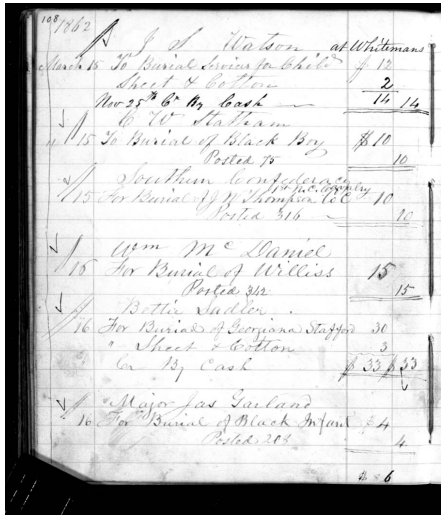 108
1862
J S Watson at Whitemans
March 15 To Burial Services for Child $ 12
Sheet & Cotton 2
Nov 25th Cr By Cash — 14 14
C W Statham
" 15 To Burial of Black Boy $10
Posted 75 10
Southern Confederacy
1st N.C. Cavalry
15 For Burial of J N Thompson Co C 10
Posted 316 — 10
Wm McDaniel
15 For Burial of Williss 15
Posted 342 15
Bettie Sadler
16 For Burial of Georgiana Stafford 30
" Sheet & Cotton 3
Cr By Cash $ 33 $ 33
Major Jas Garland
16 For Burial of Black Infant $4
Posted 208 4
6